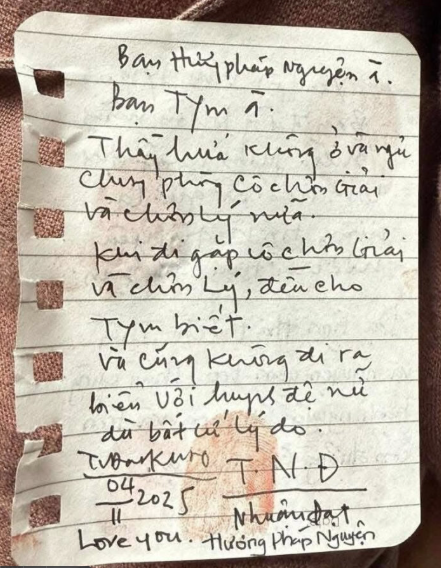 Bạn Hương pháp Nguyện à.
Bạn Tym à.
Thầy hứa không ở và ngủ
chung phòng cô chơn Giải
và chơn Lý nữa.
khi đi gặp cô chơn Giải
và chơn Lý, đều cho
Tym biết.
và cũng không đi ra
biển với huynh đệ nữ
dù bất cứ lý do.
04
11 2025
T.N.Đ
Nhuận đạt
Love you. Hương Pháp Nguyện